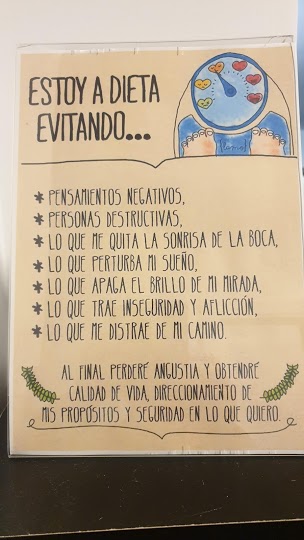 ESTOY A DIETA
EVITANDO...
* PENSAMIENTOS NEGATIVOS,
* PERSONAS DESTRUCTIVAS,
* LO QUE ME QUITA LA SONRISA DE LA BOCA,
* LO QUE PERTURBA MI SUEÑO,
* LO QUE APAGA EL BRILLO DE MI MIRADA,
* LO QUE TRAE INSEGURIDAD Y AFLICCIÓN,
* LO QUE ME DISTRAE DE MI CAMINO.
AL FINAL PERDERÉ ANGUSTIA Y OBTENDRÉ
CALIDAD DE VIDA, DIRECCIONAMIENTO DE
MIS PROPÓSITOS Y SEGURIDAD EN LO QUE QUIERO.